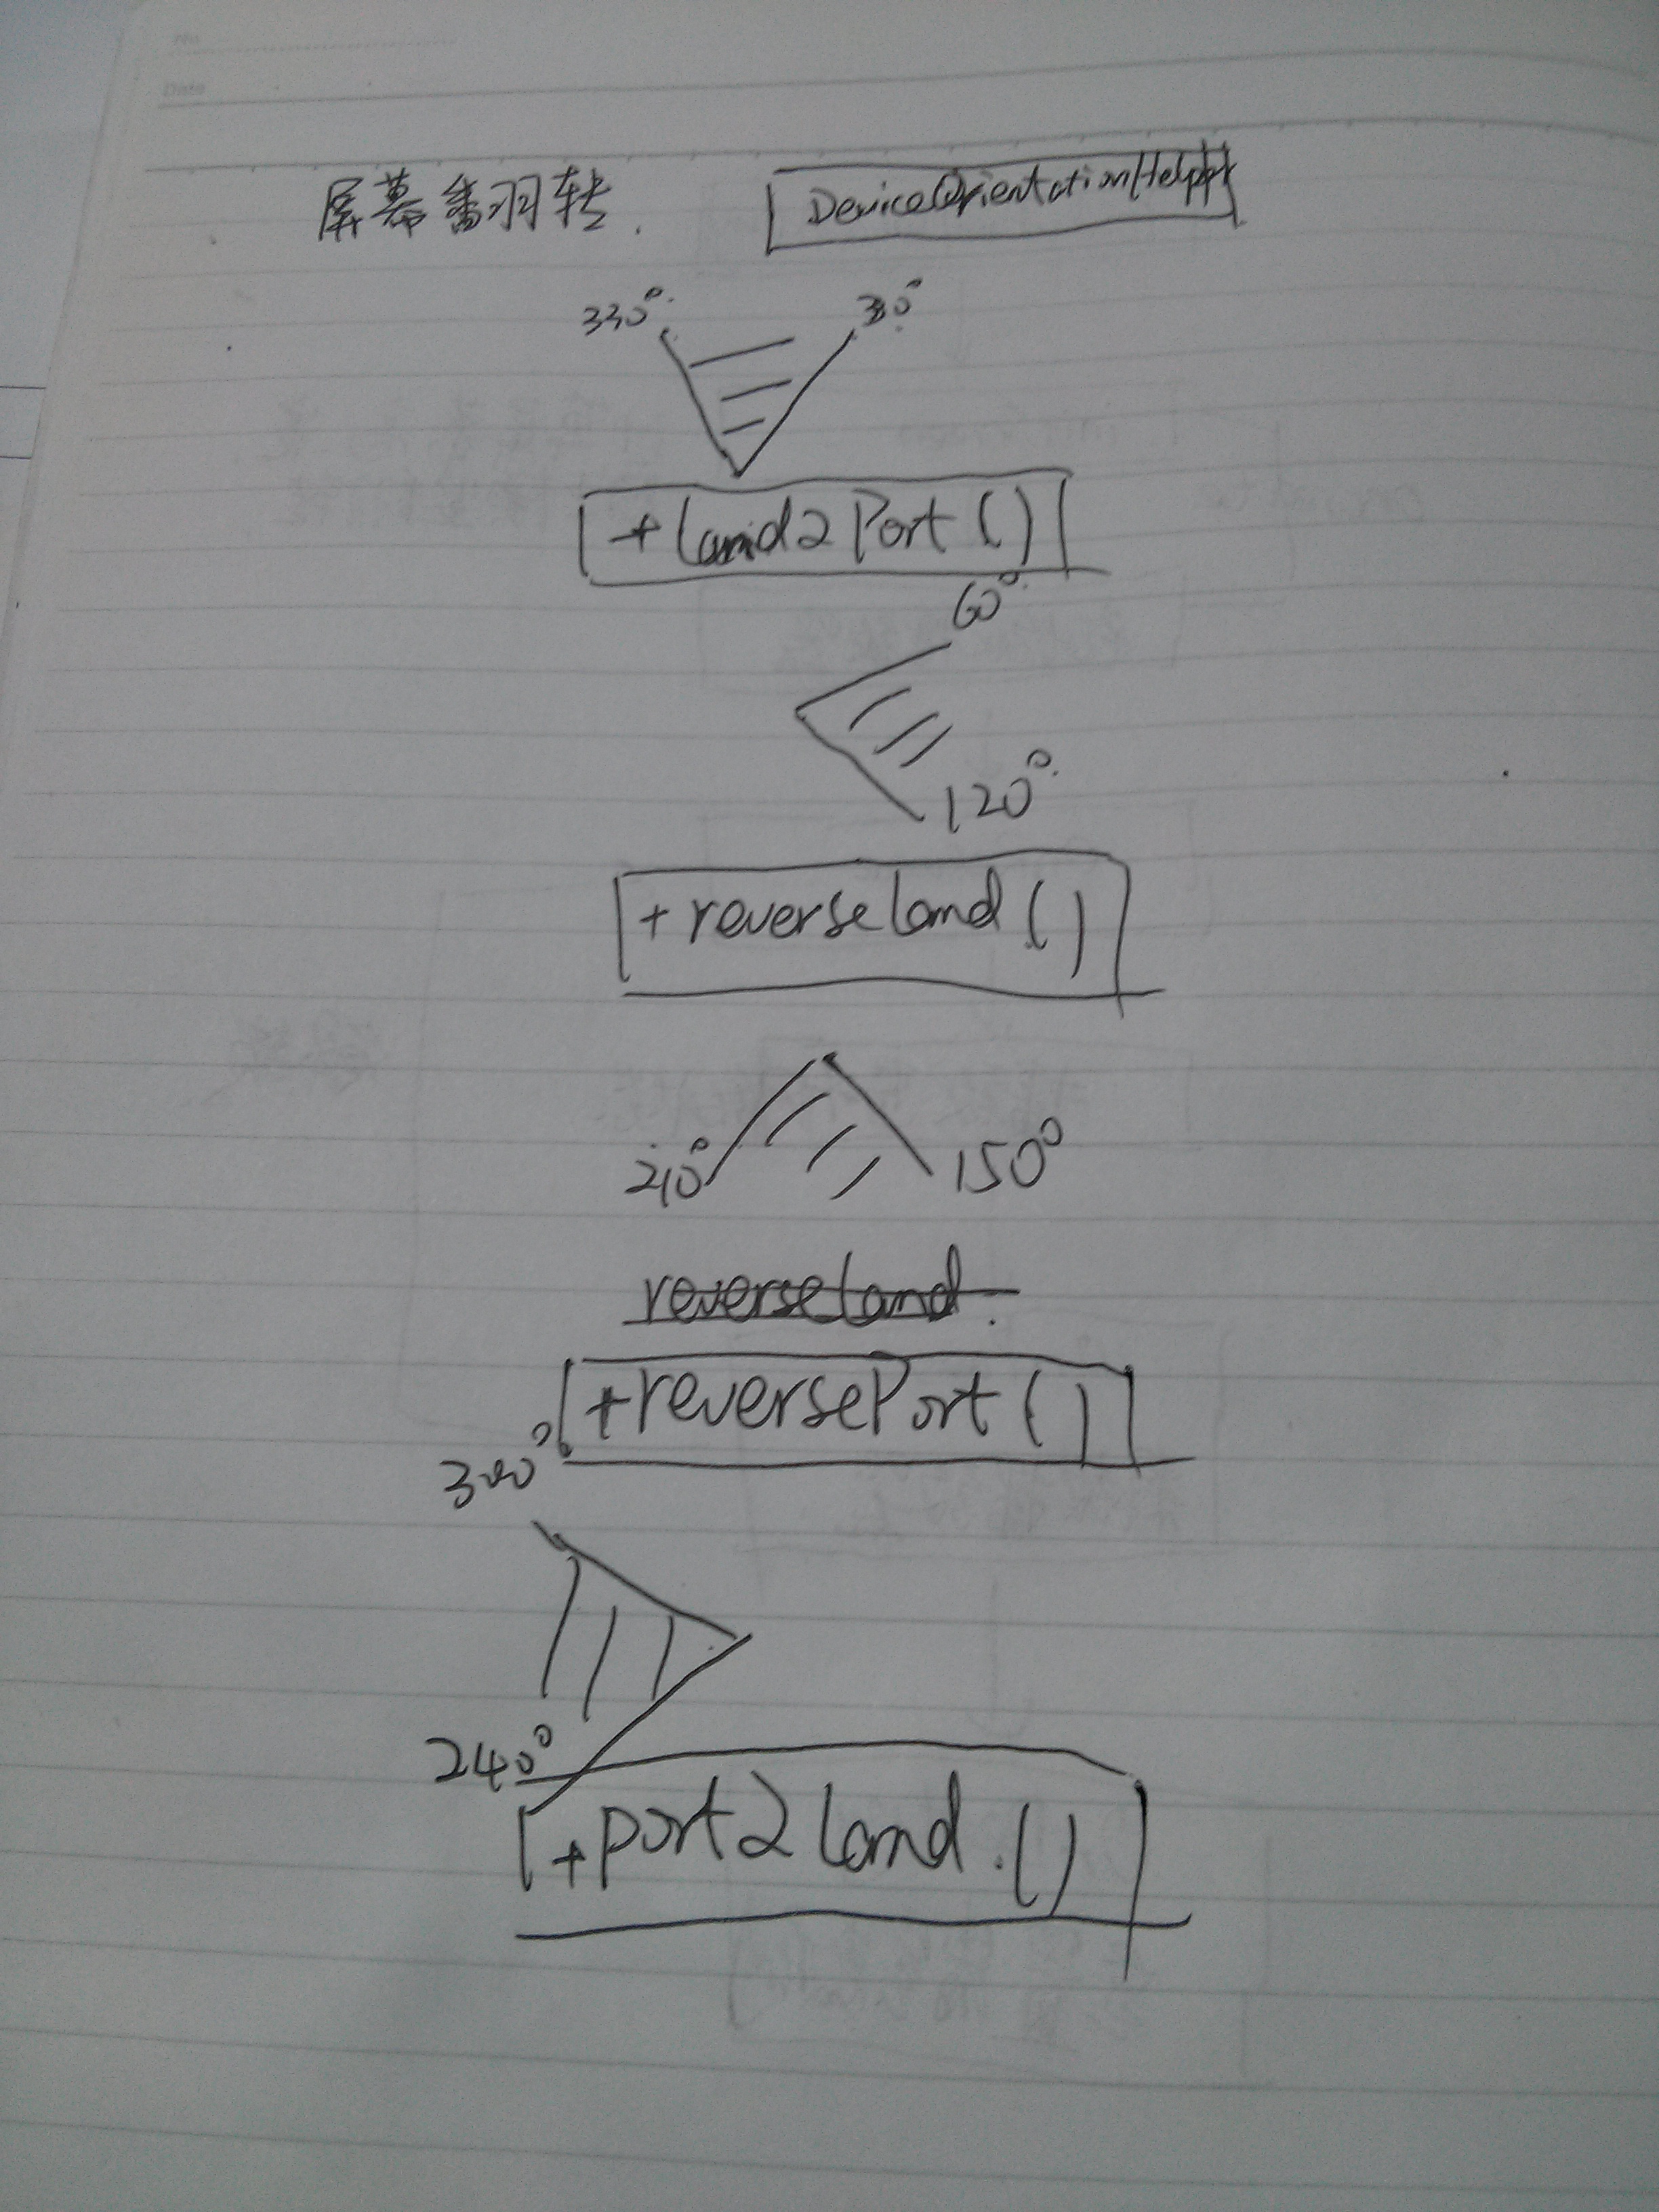 No.
Date
屏幕翻转.
DeviceOrientationHelper
330° 30°
+land2Port()
60°
120°
+reverseland()
210° 150°
reverseland.
+reversePort()
300°
240°
+port2land.()